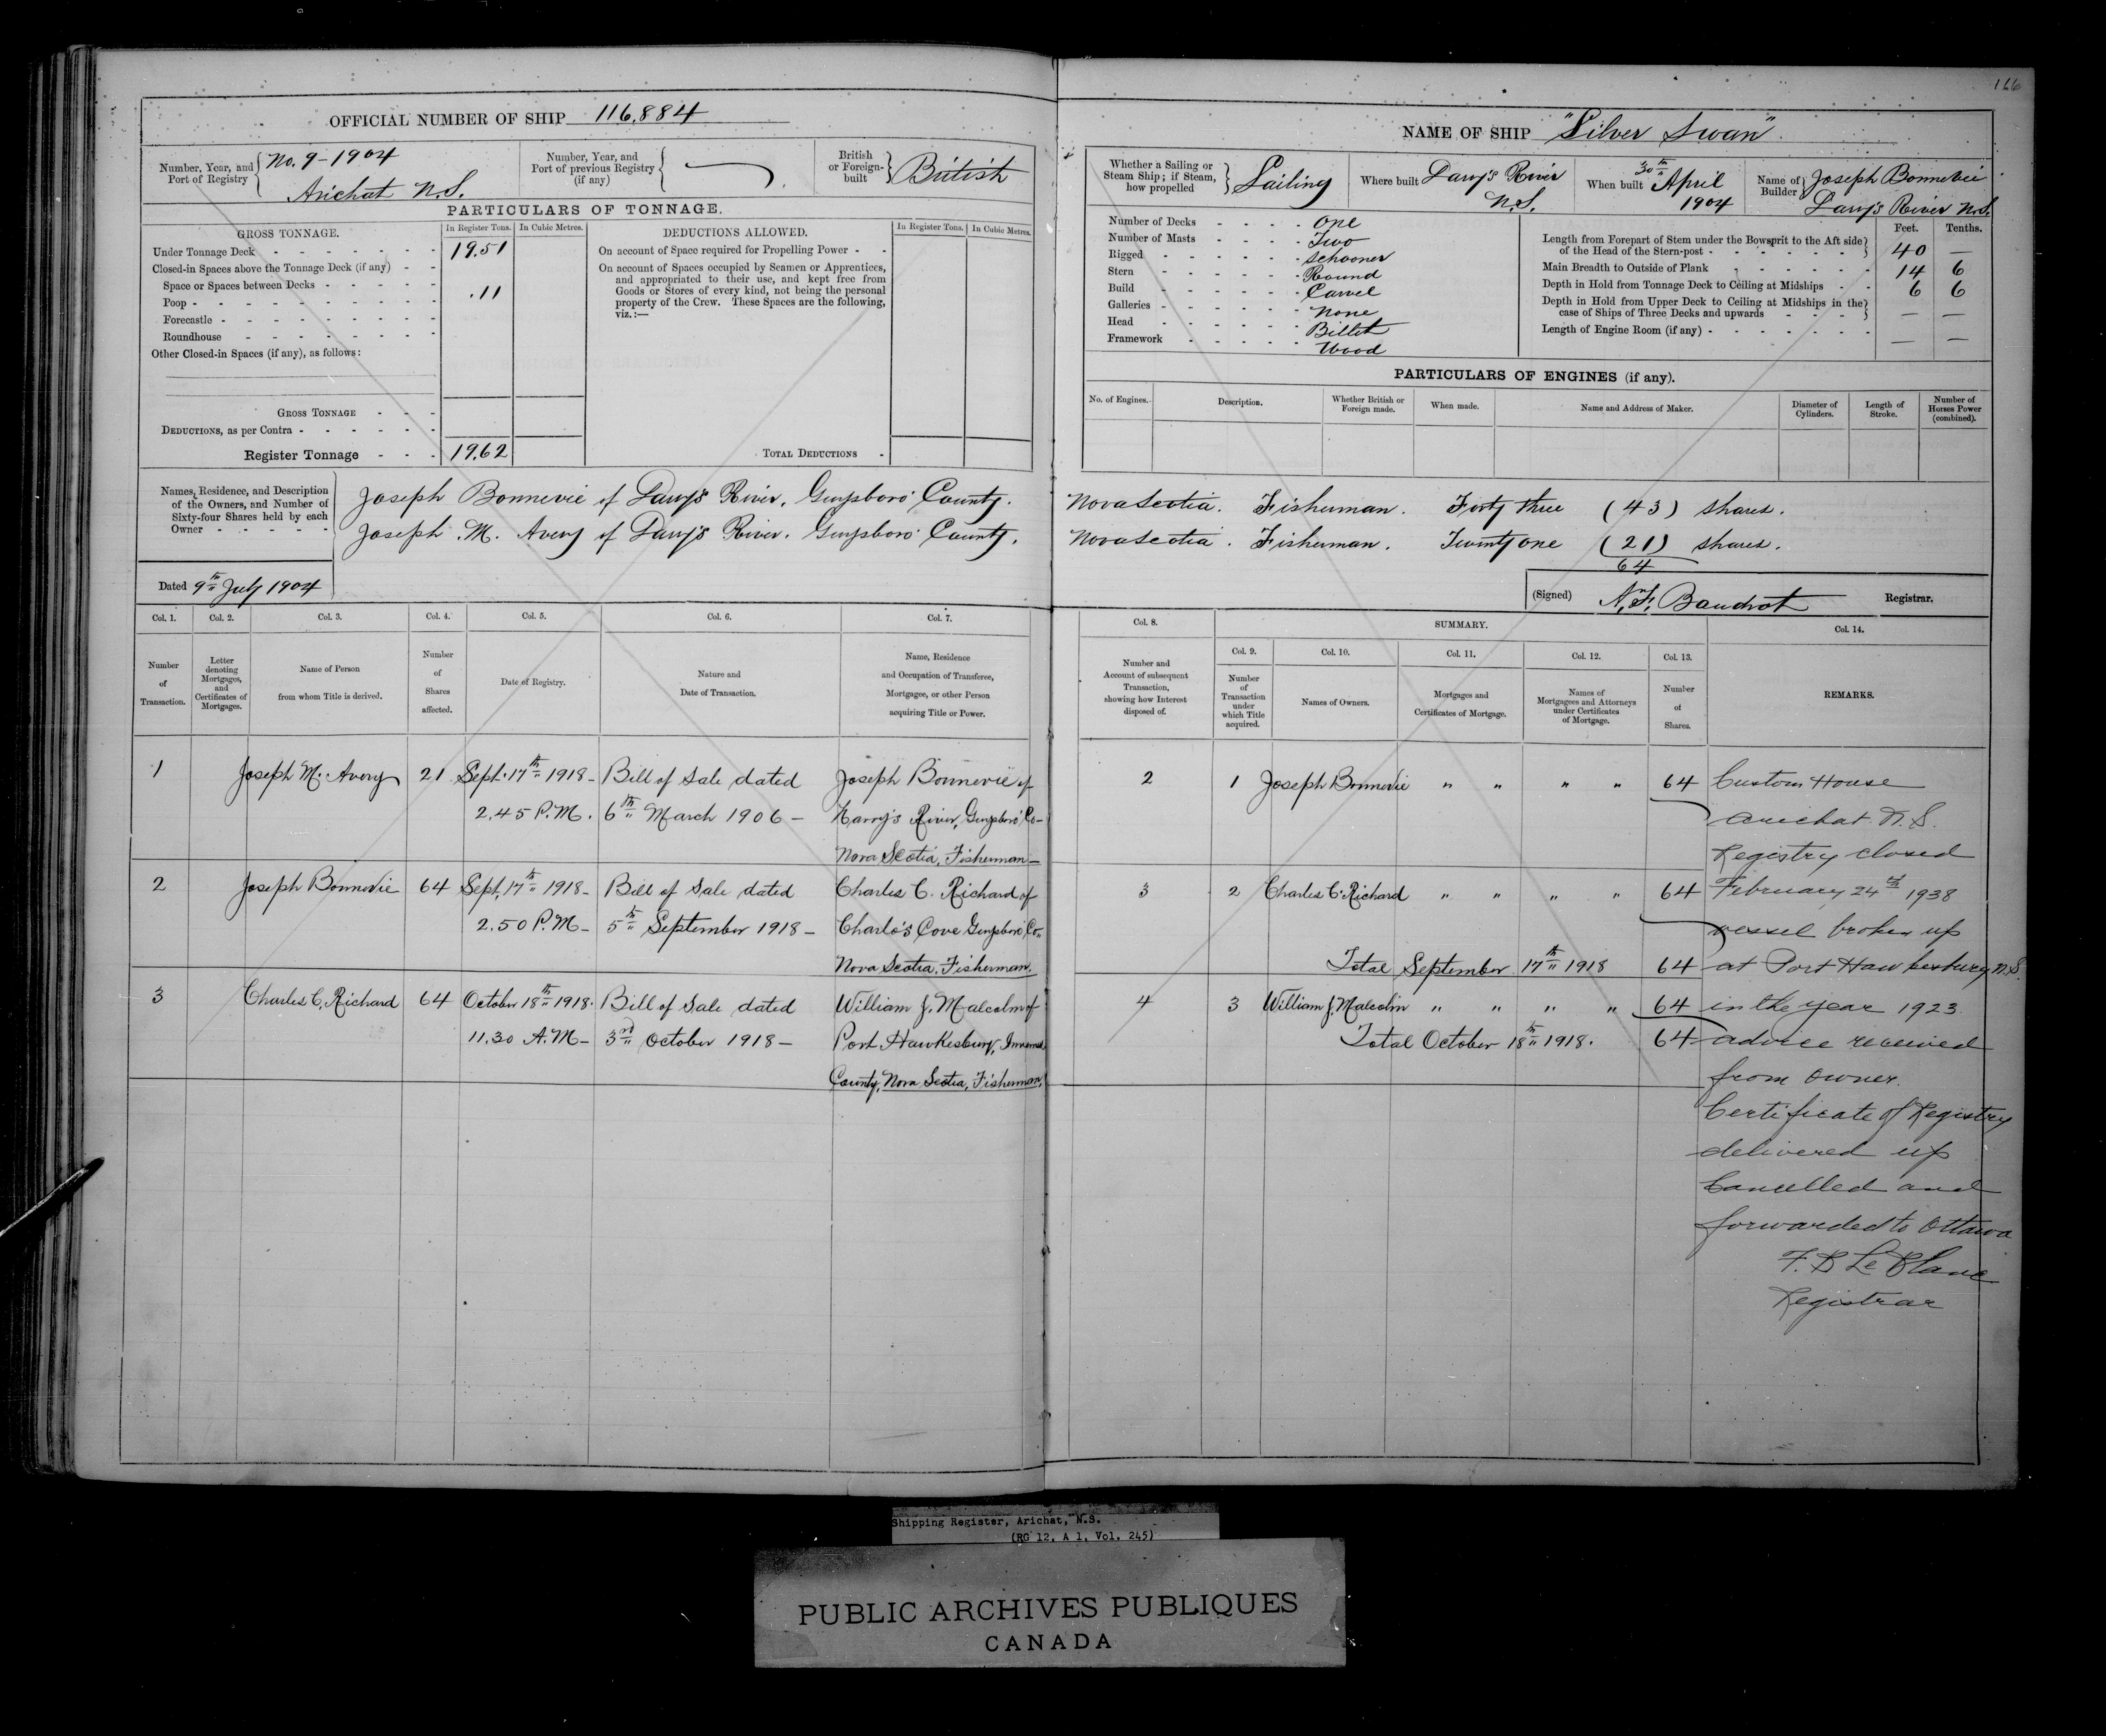 166
OFFICIAL NUMBER OF SHIP 116,884
Number, Year, and Port of Registry No. 9-1904 Arichat N.S.
Number, Year, and Port of previous Registry (if any)
British or Foreign-built British
PARTICULARS OF TONNAGE.
GROSS TONNAGE. In Register Tons. In Cubic Metres.
Under Tonnage Deck 19.51
Closed-in Spaces above the Tonnage Deck (if any)
Space or Spaces between Decks .11
Poop
Forecastle
Roundhouse
Other Closed-in Spaces (if any), as follows:
GROSS TONNAGE
DEDUCTIONS, as per Contra
Register Tonnage 19.62
DEDUCTIONS ALLOWED. In Register Tons. In Cubic Metres.
On account of Space required for Propelling Power
On account of Spaces occupied by Seamen or Apprentices,
and appropriated to their use, and kept free from
Goods or Stores of every kind, not being the personal
property of the Crew. These Spaces are the following,
viz.:—
TOTAL DEDUCTIONS
NAME OF SHIP "Silver Swan"
Whether a Sailing or Steam Ship; if Steam, how propelled Sailing
Where built Larry's River N.S.
When built 30th April 1904
Name of Builder Joseph Bonnevie Larry's River N.S.
Number of Decks One
Number of Masts Two
Rigged Schooner
Stern Round
Build Carvel
Galleries None
Head Billet
Framework Wood
Feet. Tenths.
Length from Forepart of Stem under the Bowsprit to the Aft side of the Head of the Stern-post 40 —
Main Breadth to Outside of Plank 14 6
Depth in Hold from Tonnage Deck to Ceiling at Midships 6 6
Depth in Hold from Upper Deck to Ceiling at Midships in the case of Ships of Three Decks and upwards — —
Length of Engine Room (if any) — —
PARTICULARS OF ENGINES (if any).
No. of Engines. Description. Whether British or Foreign made. When made. Name and Address of Maker. Diameter of Cylinders. Length of Stroke. Number of Horses Power (combined).
Names, Residence, and Description of the Owners, and Number of Sixty-four Shares held by each Owner
Joseph Bonnevie of Larry's River, Guysboro' County. Nova Scotia. Fisherman. Forty three (43) shares.
Joseph M. Avery of Larry's River. Guysboro' County. Nova Scotia. Fisherman. Twenty one (21) shares.
64
Dated 9th July 1904
(Signed) Registrar.
Col. 1. Col. 2. Col. 3. Col. 4. Col. 5. Col. 6. Col. 7.
Number of Transaction.
Letter denoting Mortgages, and Certificates of Mortgages.
Name of Person from whom Title is derived.
Number of Shares affected.
Date of Registry.
Nature and Date of Transaction.
Name, Residence and Occupation of Transferee, Mortgagee, or other Person acquiring Title or Power.
1 Joseph M. Avery 21 Sept. 17th 1918- Bill of Sale dated Joseph Bonnevie of
2.45 P.M. 6th March 1906 - Larry's River, Guysboro' Co-
Nova Scotia, Fisherman-
2 Joseph Bonnevie 64 Sept. 17th 1918- Bill of Sale dated Charles C. Richard of
2.50 P.M- 5th September 1918- Charlo's Cove Guysboro' Co-
Nova Scotia. Fisherman.
3 Charles C. Richard 64 October 18th 1918. Bill of Sale dated William J. Malcolm of
11.30 A.M- 3rd October 1918-
Port Hawkesbury,
County, Nova Scotia, Fisherman.
Col. 8. SUMMARY. Col. 14.
Col. 9. Col. 10. Col. 11. Col. 12. Col. 13.
Number and Account of subsequent Transaction, showing how Interest disposed of.
Number of Transaction under which Title acquired.
Names of Owners.
Mortgages and Certificates of Mortgage.
Names of Mortgagees and Attorneys under Certificates of Mortgage.
Number of Shares.
REMARKS.
2 1 Joseph Bonnevie " " " " 64
3 2 Charles C. Richard " " " " 64
Total September 17th 1918 64
4 3 William J. Malcolm " " " " 64
Total October 18th 1918. 64
Custom House
Arichat N.S.
Registry closed
February 24th 1938
vessel broken up
at Port Hawkesbury N.S.
in the year 1923.
advice received
from owner.
Certificate of Registry
delivered up
Cancelled and
forwarded to Ottawa
F. B LeBlanc
Registrar
Shipping Register, Arichat, N.S.
(RG 12, A 1, Vol. 245)
PUBLIC ARCHIVES PUBLIQUES
CANADA